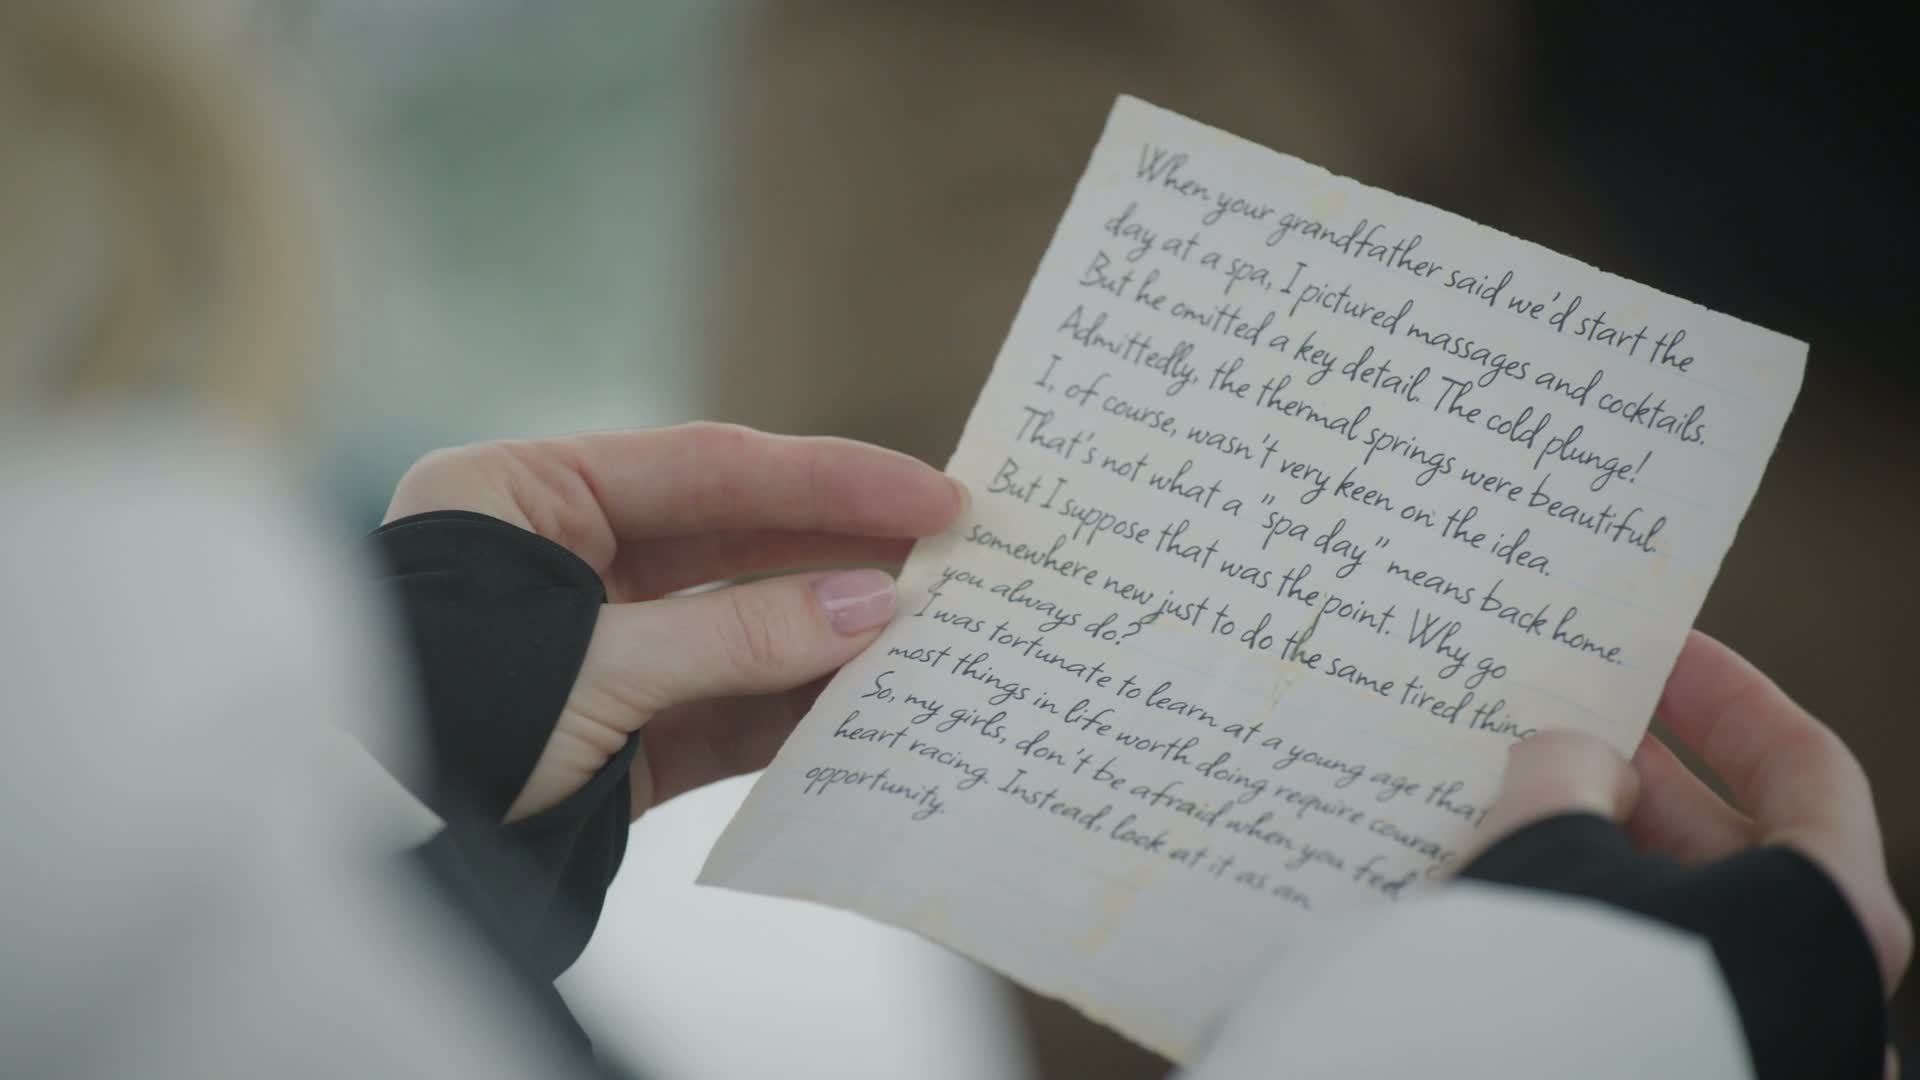 When your grandfather said we'd start the
day at a spa, I pictured massages and cocktails.
But he omitted a key detail. The cold plunge!
Admittedly, the thermal springs were beautiful.
I, of course, wasn't very keen on the idea.
That's not what a "spa day" means back home.
But I suppose that was the point. Why go
somewhere new just to do the same tired thing
you always do?
I was tortunate to learn at a young age that
most things in life worth doing require courag
So, my girls, don't be afraid when you feel
heart racing. Instead, look at it as an
opportunity.